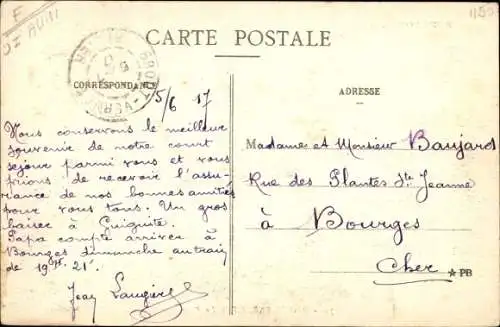 E
CARTE POSTALE
CORRESPONDANCE
ADRESSE
5/6 17
Nous conservons le meilleur
souvenir de notre court
séjour parmi vous et vous
prions de recevoir l'assu-
rance de nos bonnes amitiés
pour vous tous. Un gros
baiser à Guiguite.
Papa compte arriver à
Bourges dimanche au train
de 19h 21.
Jean Laugier
Madame et Monsieur Baujard
Rue des Plantes Ste Jeanne
à Bourges
Cher
★ PB